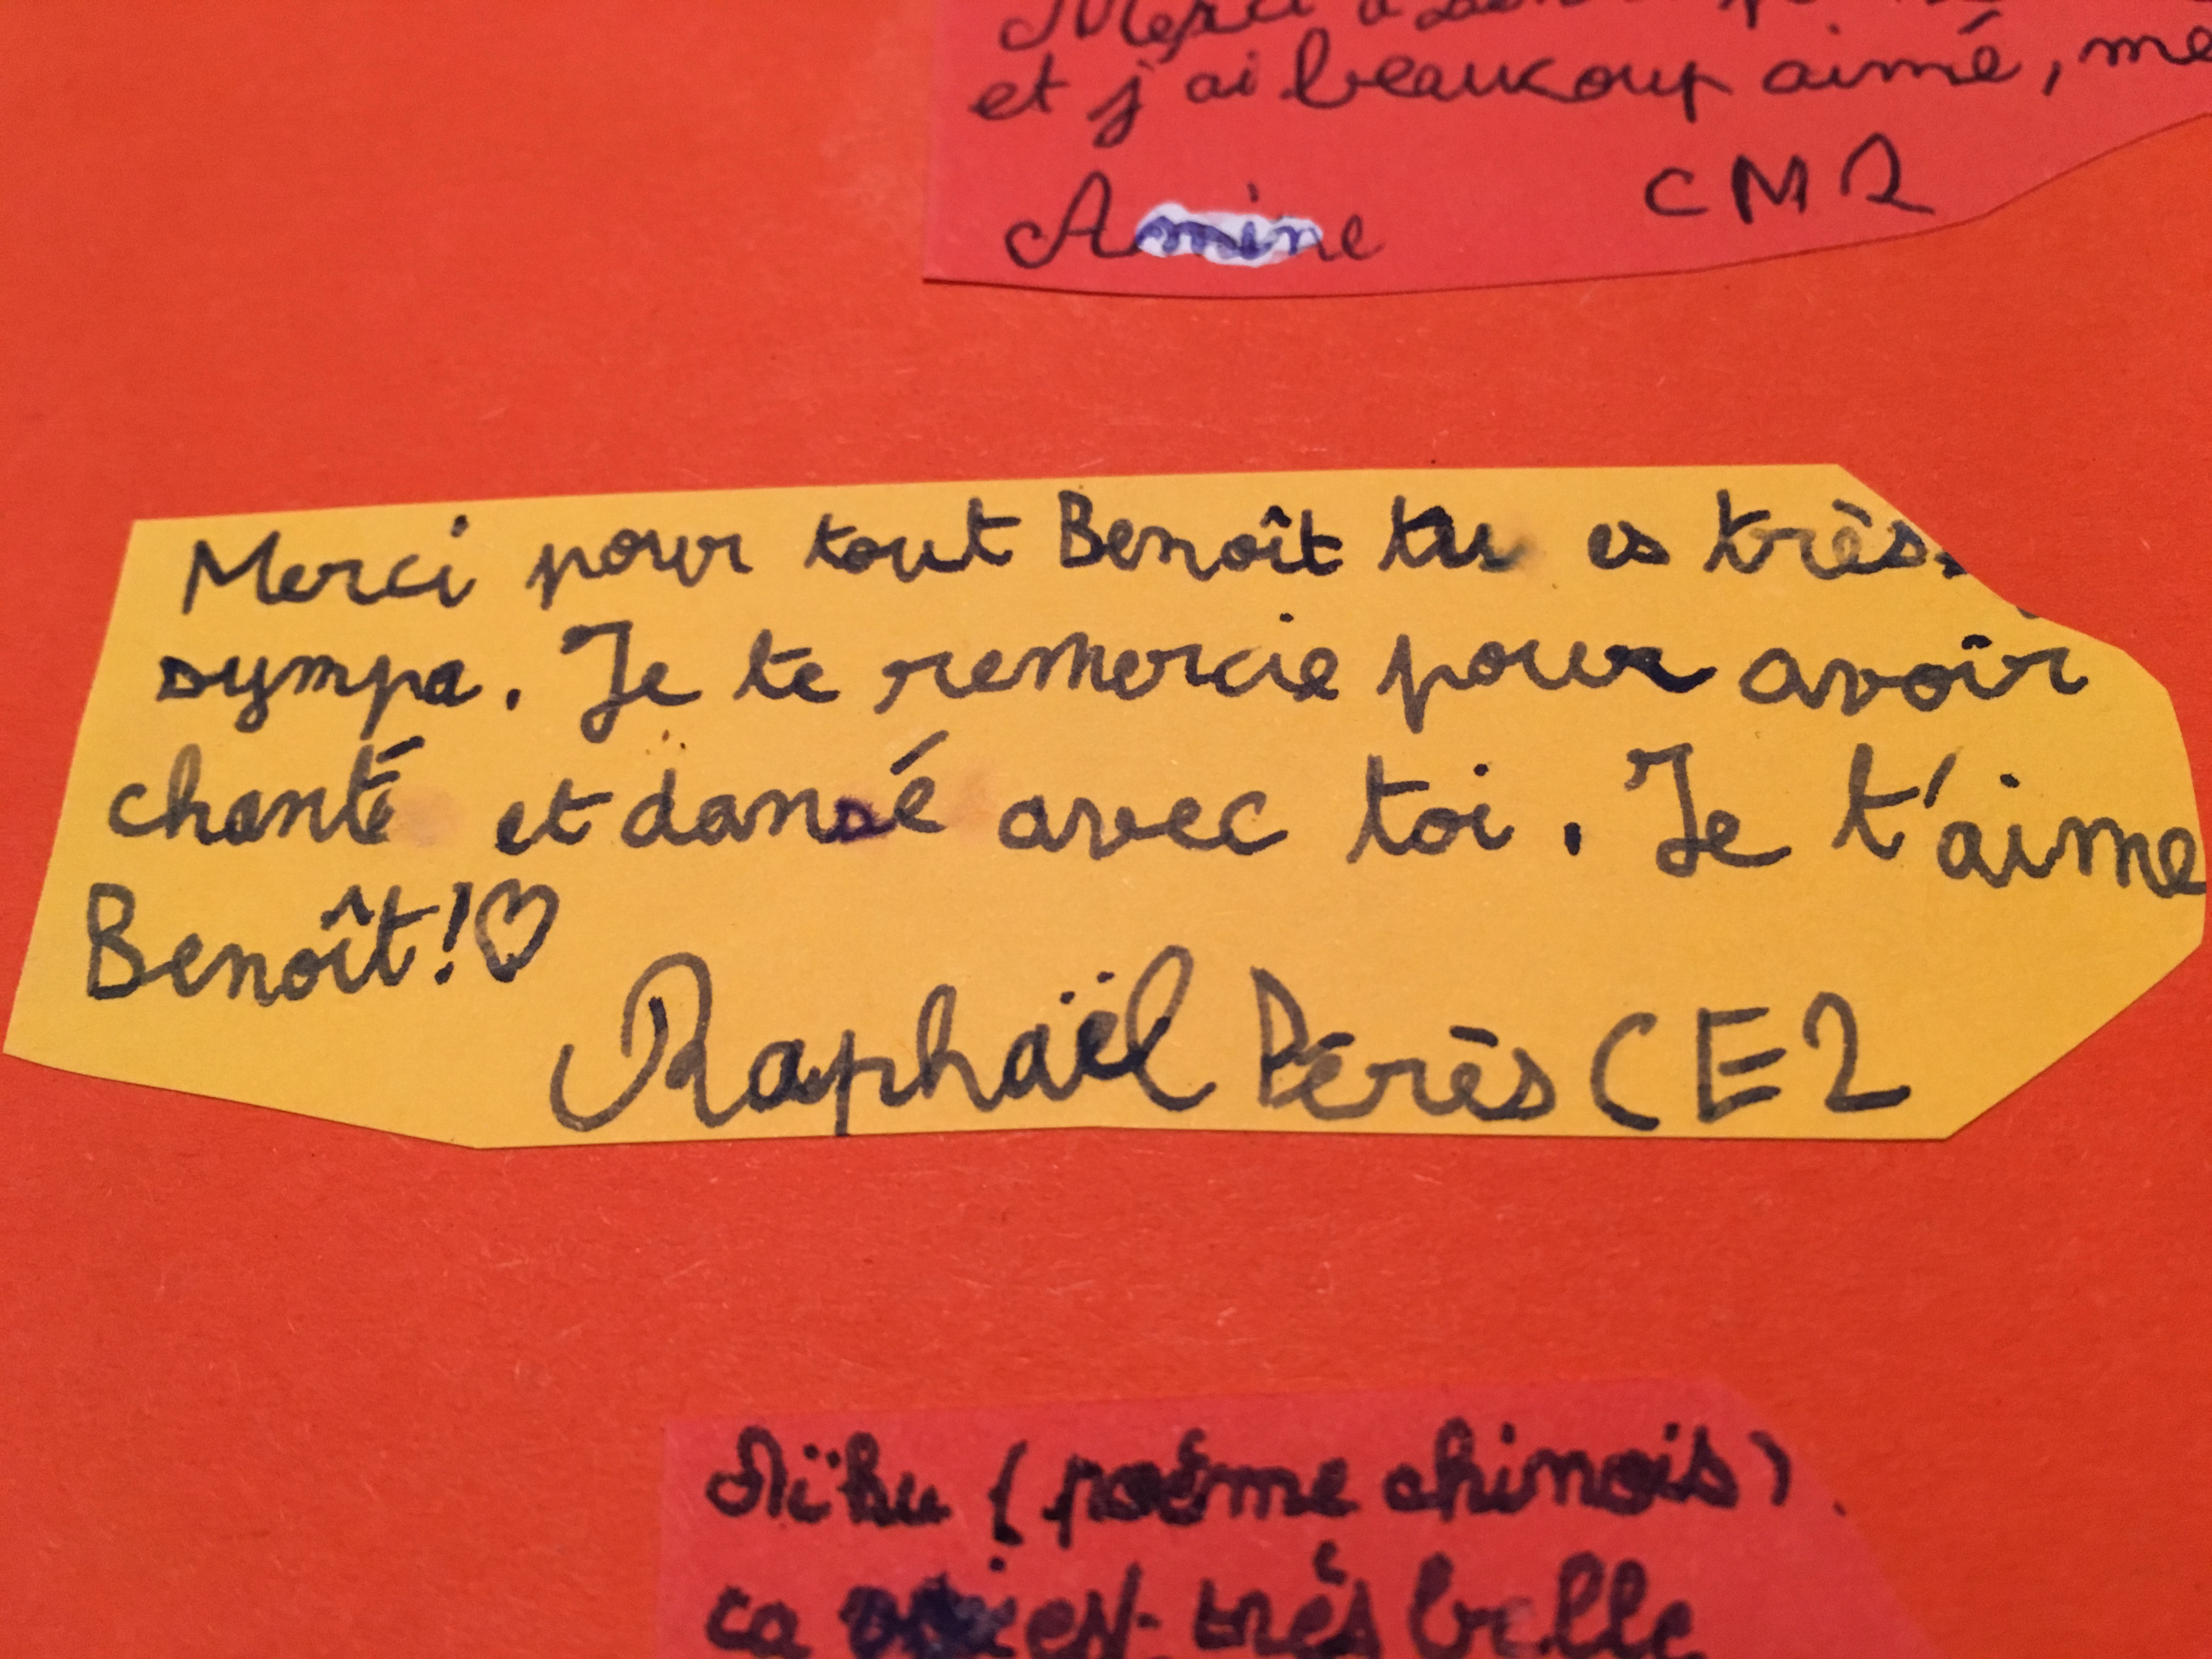 Merci à
et j'ai beaucoup aimé, me
Amine CM2
Merci pour tout Benoît tu es très
sympa. Je te remercie pour avoir
chanté et dansé avec toi. Je t'aime
Benoît!♡
Raphaël Pérès CE2
Aïku (poéme chinois)
ca est très belle